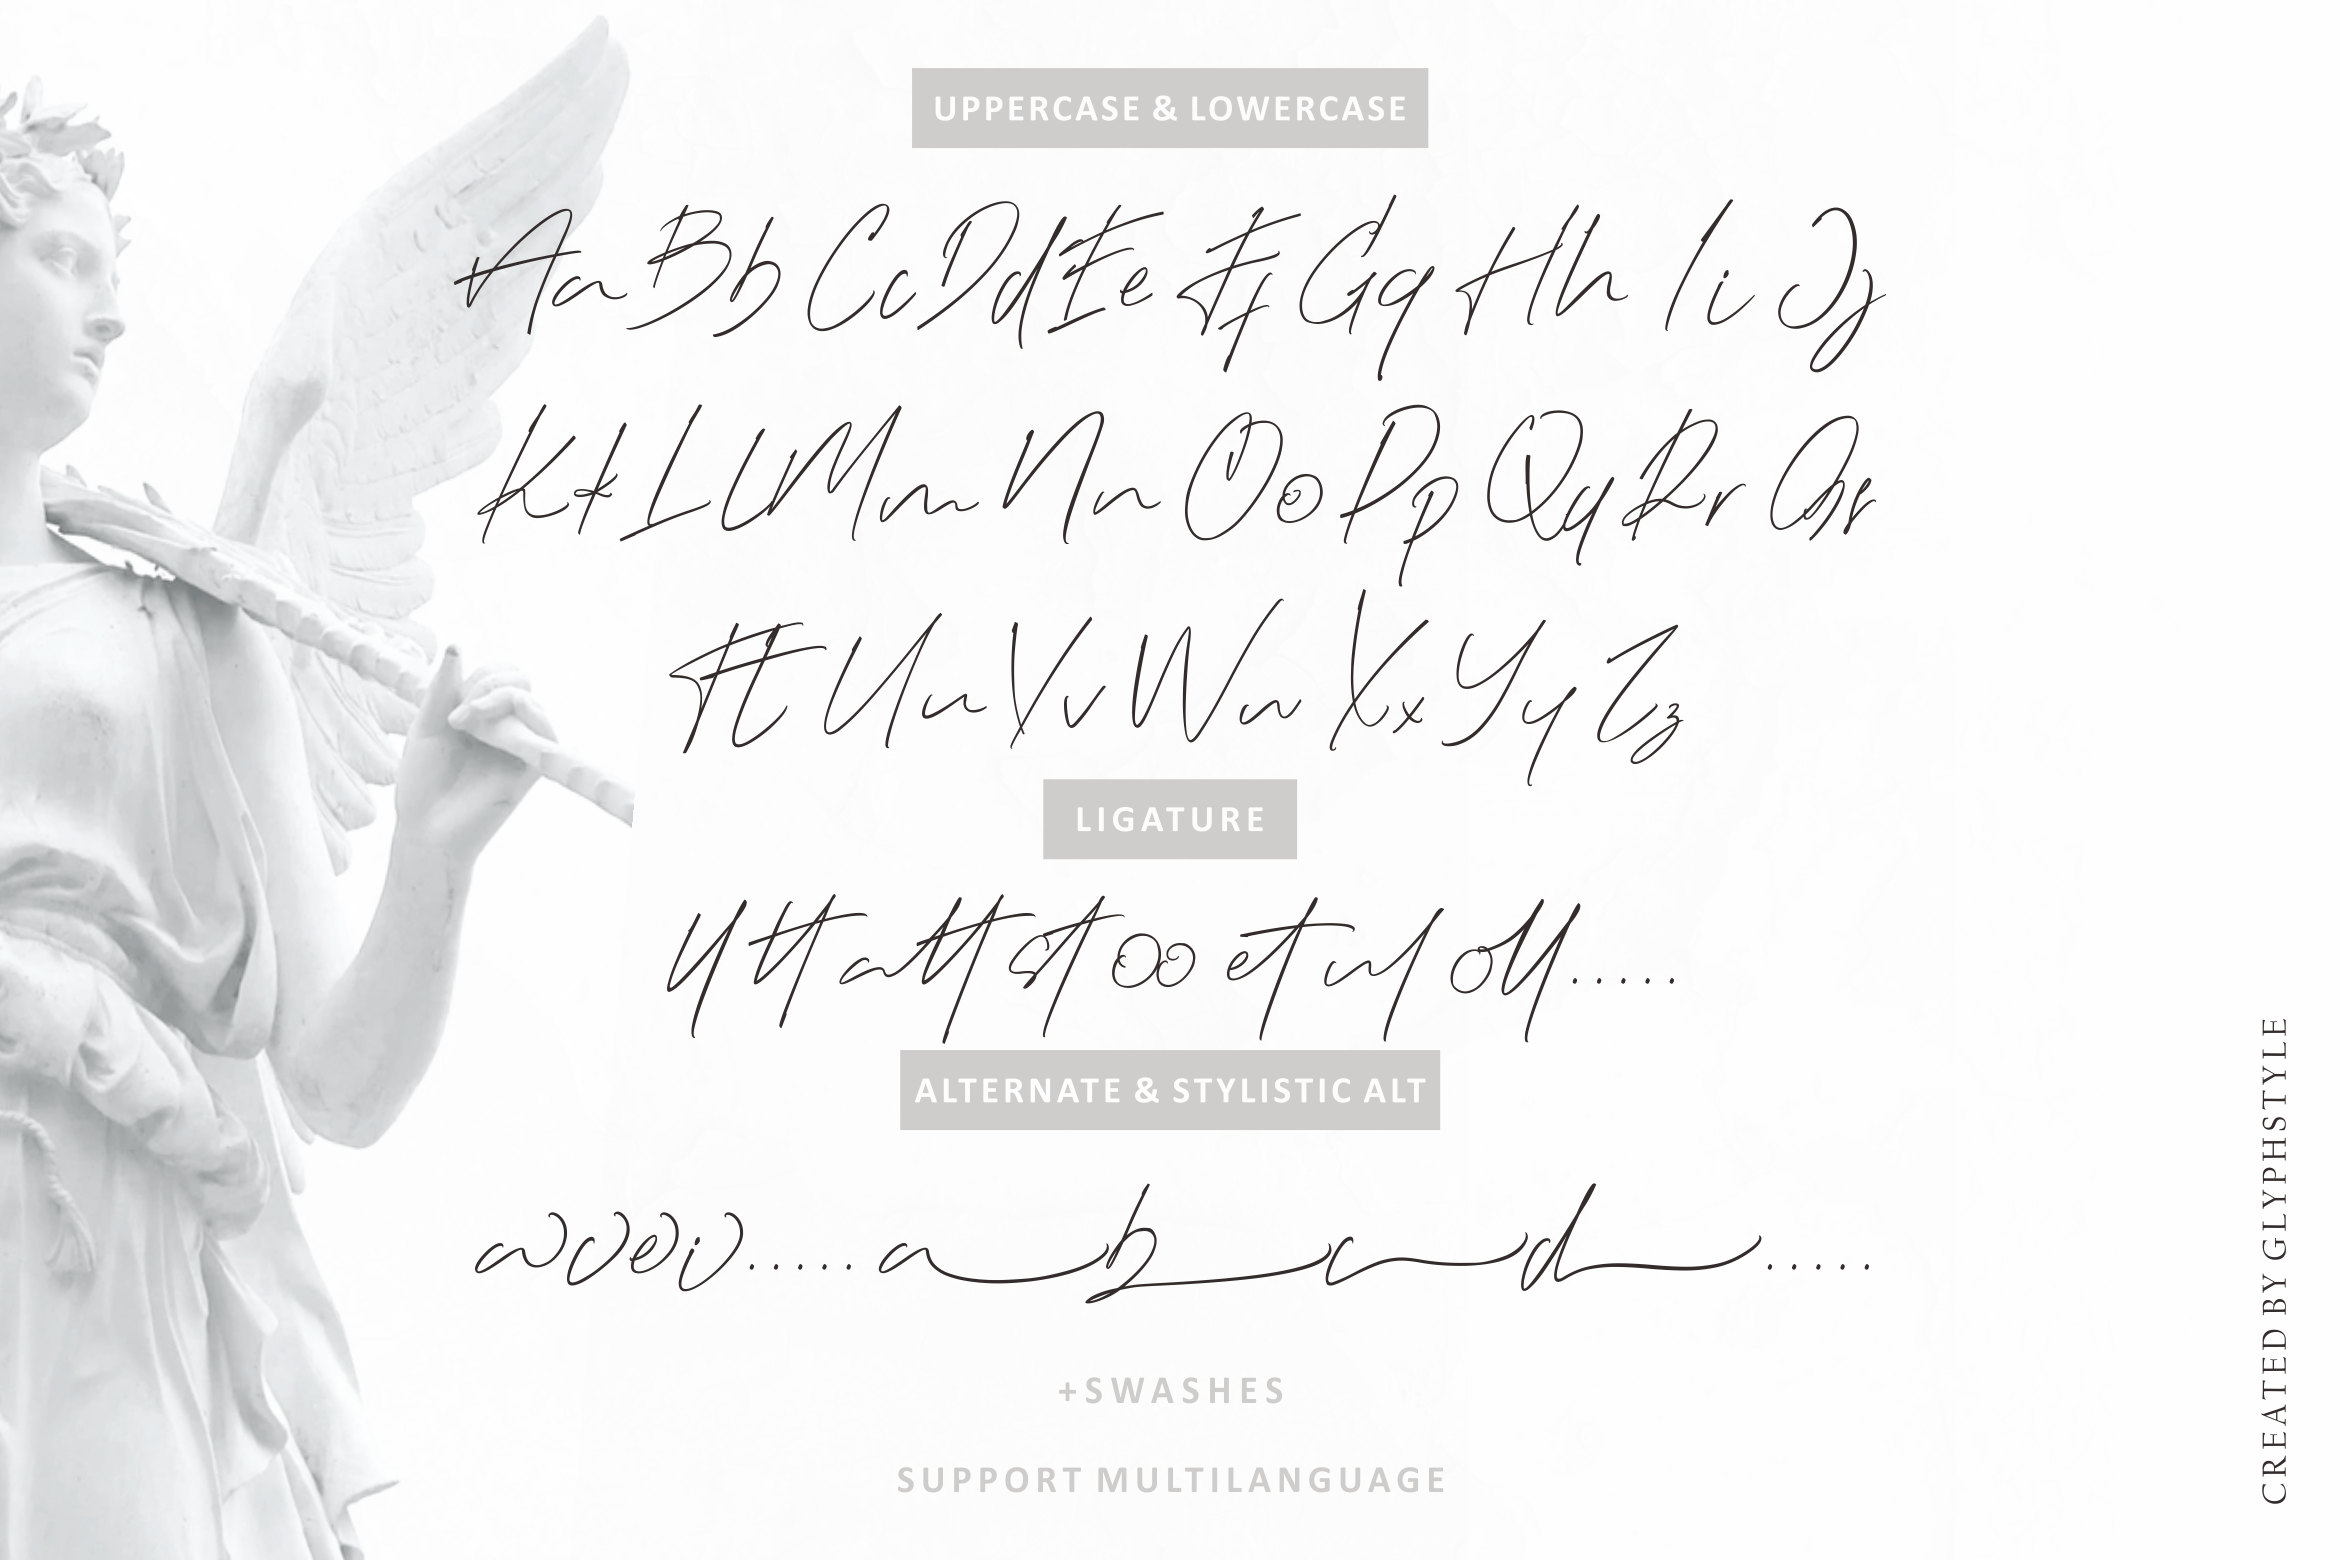 UPPERCASE & LOWERCASE
Aa Bb Cc Dd Ee Ff Gg Hh Ii Jj
Kk Ll Mm Nn Oo Pp Qq Rr Ss
Tt Uu Vv Ww Xx Yy Zz
LIGATURE
ll tt att st oo et ul oll.....
ALTERNATE & STYLISTIC ALT
a c e i ..... a b c d .....
+SWASHES
SUPPORT MULTILANGUAGE
CREATED BY GLYPHSTYLE